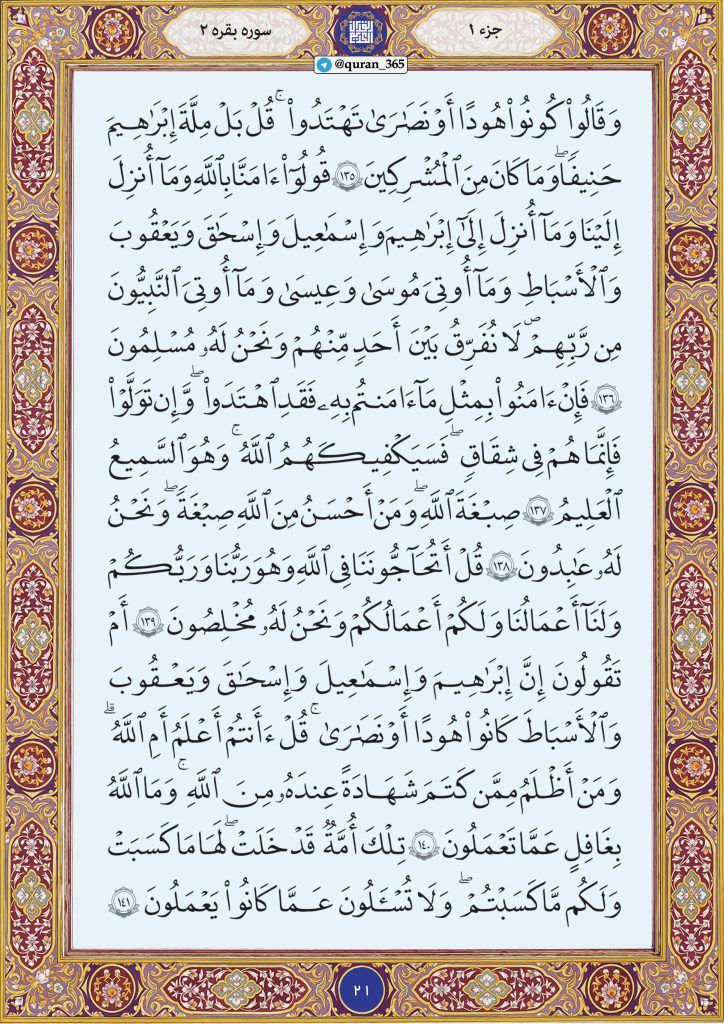 جزء ۱
سوره بقره ۲
@quran_365
وَقَالُوا۟ كُونُوا۟ هُودًا أَوْ نَصَٰرَىٰ تَهْتَدُوا۟ ۗ قُلْ بَلْ مِلَّةَ إِبْرَٰهِـۧمَ
حَنِيفًا ۖ وَمَا كَانَ مِنَ ٱلْمُشْرِكِينَ ۝١٣٥ قُولُوٓا۟ ءَامَنَّا بِٱللَّهِ وَمَآ أُنزِلَ
إِلَيْنَا وَمَآ أُنزِلَ إِلَىٰٓ إِبْرَٰهِـۧمَ وَإِسْمَٰعِيلَ وَإِسْحَٰقَ وَيَعْقُوبَ
وَٱلْأَسْبَاطِ وَمَآ أُوتِىَ مُوسَىٰ وَعِيسَىٰ وَمَآ أُوتِىَ ٱلنَّبِيُّونَ
مِن رَّبِّهِمْ لَا نُفَرِّقُ بَيْنَ أَحَدٍ مِّنْهُمْ وَنَحْنُ لَهُۥ مُسْلِمُونَ
۝١٣٦ فَإِنْ ءَامَنُوا۟ بِمِثْلِ مَآ ءَامَنتُم بِهِۦ فَقَدِ ٱهْتَدَوا۟ ۖ وَّإِن تَوَلَّوْا۟
فَإِنَّمَا هُمْ فِى شِقَاقٍ ۖ فَسَيَكْفِيكَهُمُ ٱللَّهُ ۚ وَهُوَ ٱلسَّمِيعُ
ٱلْعَلِيمُ ۝١٣٧ صِبْغَةَ ٱللَّهِ ۖ وَمَنْ أَحْسَنُ مِنَ ٱللَّهِ صِبْغَةً ۖ وَنَحْنُ
لَهُۥ عَٰبِدُونَ ۝١٣٨ قُلْ أَتُحَآجُّونَنَا فِى ٱللَّهِ وَهُوَ رَبُّنَا وَرَبُّكُمْ
وَلَنَآ أَعْمَٰلُنَا وَلَكُمْ أَعْمَٰلُكُمْ وَنَحْنُ لَهُۥ مُخْلِصُونَ ۝١٣٩ أَمْ
تَقُولُونَ إِنَّ إِبْرَٰهِـۧمَ وَإِسْمَٰعِيلَ وَإِسْحَٰقَ وَيَعْقُوبَ
وَٱلْأَسْبَاطَ كَانُوا۟ هُودًا أَوْ نَصَٰرَىٰ ۗ قُلْ ءَأَنتُمْ أَعْلَمُ أَمِ ٱللَّهُ ۗ
وَمَنْ أَظْلَمُ مِمَّن كَتَمَ شَهَٰدَةً عِندَهُۥ مِنَ ٱللَّهِ ۗ وَمَا ٱللَّهُ
بِغَٰفِلٍ عَمَّا تَعْمَلُونَ ۝١٤٠ تِلْكَ أُمَّةٌ قَدْ خَلَتْ ۖ لَهَا مَا كَسَبَتْ
وَلَكُم مَّا كَسَبْتُمْ ۖ وَلَا تُسْـَٔلُونَ عَمَّا كَانُوا۟ يَعْمَلُونَ ۝١٤١
۲۱